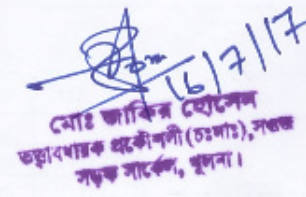 16/7/17
মোঃ জাকির হোসেন
তত্ত্বাবধায়ক প্রকৌশলী (চঃদাঃ), সওজ
সড়ক সার্কেল, খুলনা।